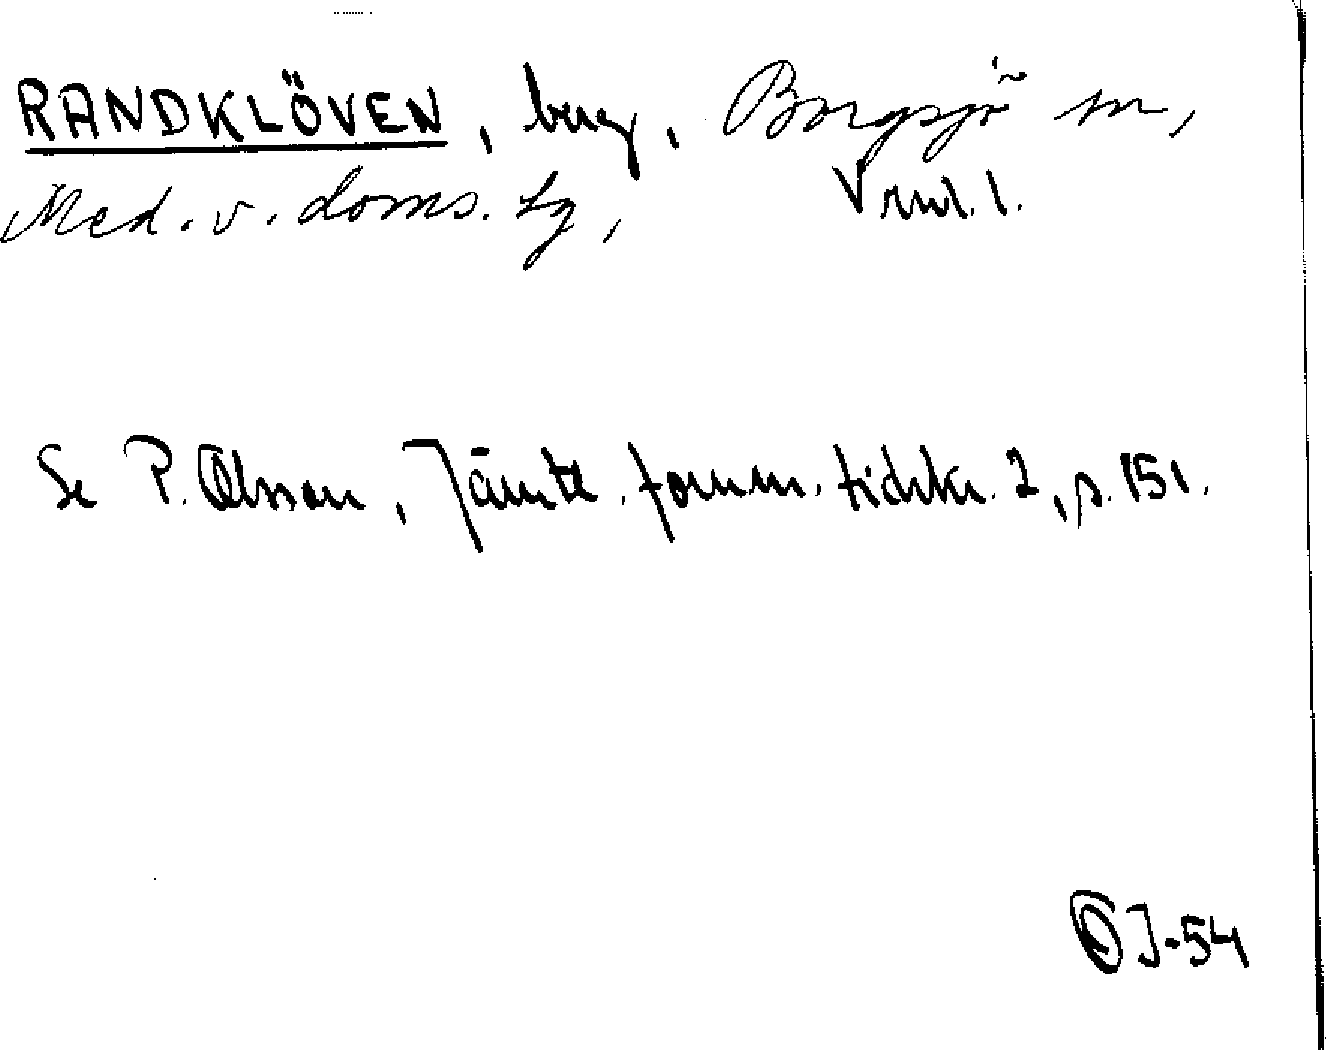 RANDKLÖVEN, berg, Borgsjö sn,
Med. v. doms. tg, Vrml. l.
Se P. Olsson, Jämtl. fornm. tidskr. 2, s. 151.
OJ-54